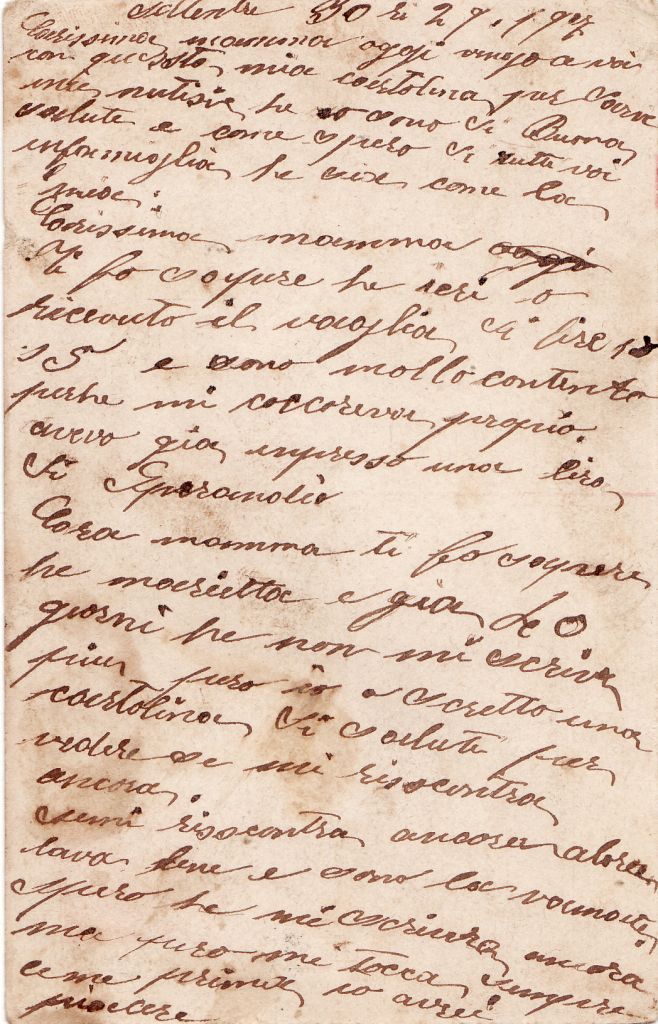 settembre 30 li 29. 1917
Carissima mamma oggi vengo a voi
con questo mia cartolina per darve
inte nutisie he io sono di Buona
salute e come spero di tutti voi
infamiglia he sia come la
mia.
Carissima mamma oggi
Ti fo sapere he ieri o
ricevuto il vaglia di lire
15 e sono molto contento
perhe mi coccoreva propio.
avevo gia inpresso una lira
di Sperandio
Cara mamma ti fo sapere
he marietta e gia
giorni he non mi scriva
piu pero io o scretto una
cartolina di saluti per
vedere se mi risscontra
ancora.
semi risscontra ancora alora
lava bene e sono la vamaite
spero he mi scrivra ancora
ma pero me tocca sempre
ceme prima io avrei
piacere